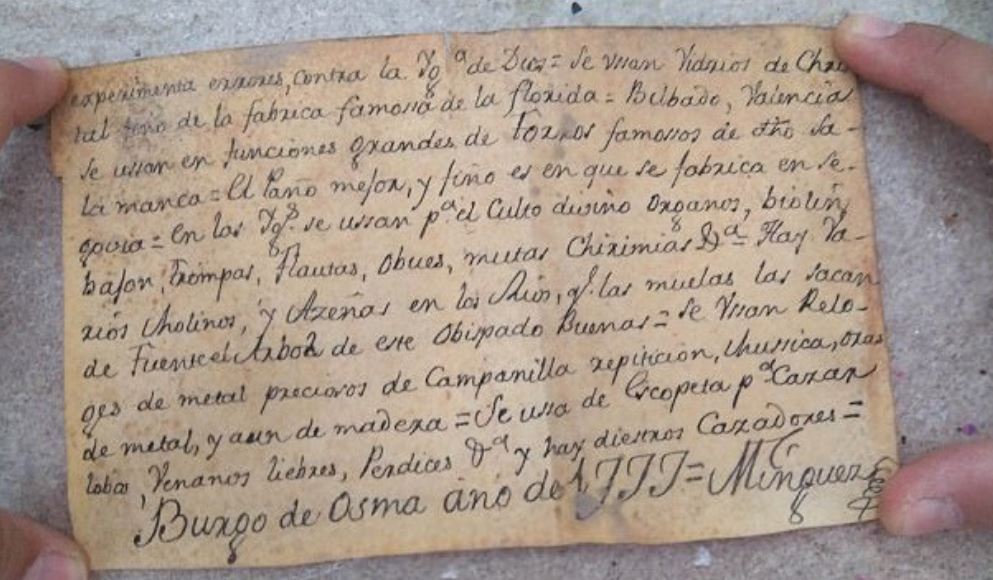 experimenta errores, contra la Yg.ª de Dios = Se vsan Vidrios de Chris
tal fino de la fabrica famossa de la florida = Bilbado, Valencia
Se ussan en funciones grandes de torros famossos de dho Sa-
lamanca = El Paño mejor, y fino es en que se fabrica en Se-
govia = en las Yg.s se ussan p.ª el Culto divino Organos, biolin,
bajon, trompas, flautas, obues, Chirimias &ª = Hay Va-
rios Molinos, y Azeñas en los Rios, q.e las muelas las sacan
de Fuentelarbol de este Obispado Buenas = Se Vsan Relo-
ges de metal preciosos de Campanilla repiticion, Mussica, oras
de metal, y aun de madera = Se ussa de Escopeta p.ª Cazar
lobos, Venanos liebres, Perdices &ª y hay diestros Cazadores =
Burgo de Osma año de 1777 = Minguez